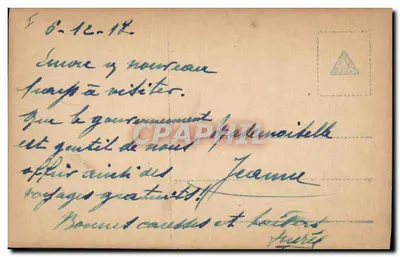 6-12-18
Encore un nouveau
pays à visiter.
Que le gouvernement
est gentil de nous
offrir ainsi des
voyages gratuits!!
Bonnes caresses et
Mademoiselle
Jeanne
CPAPHIL